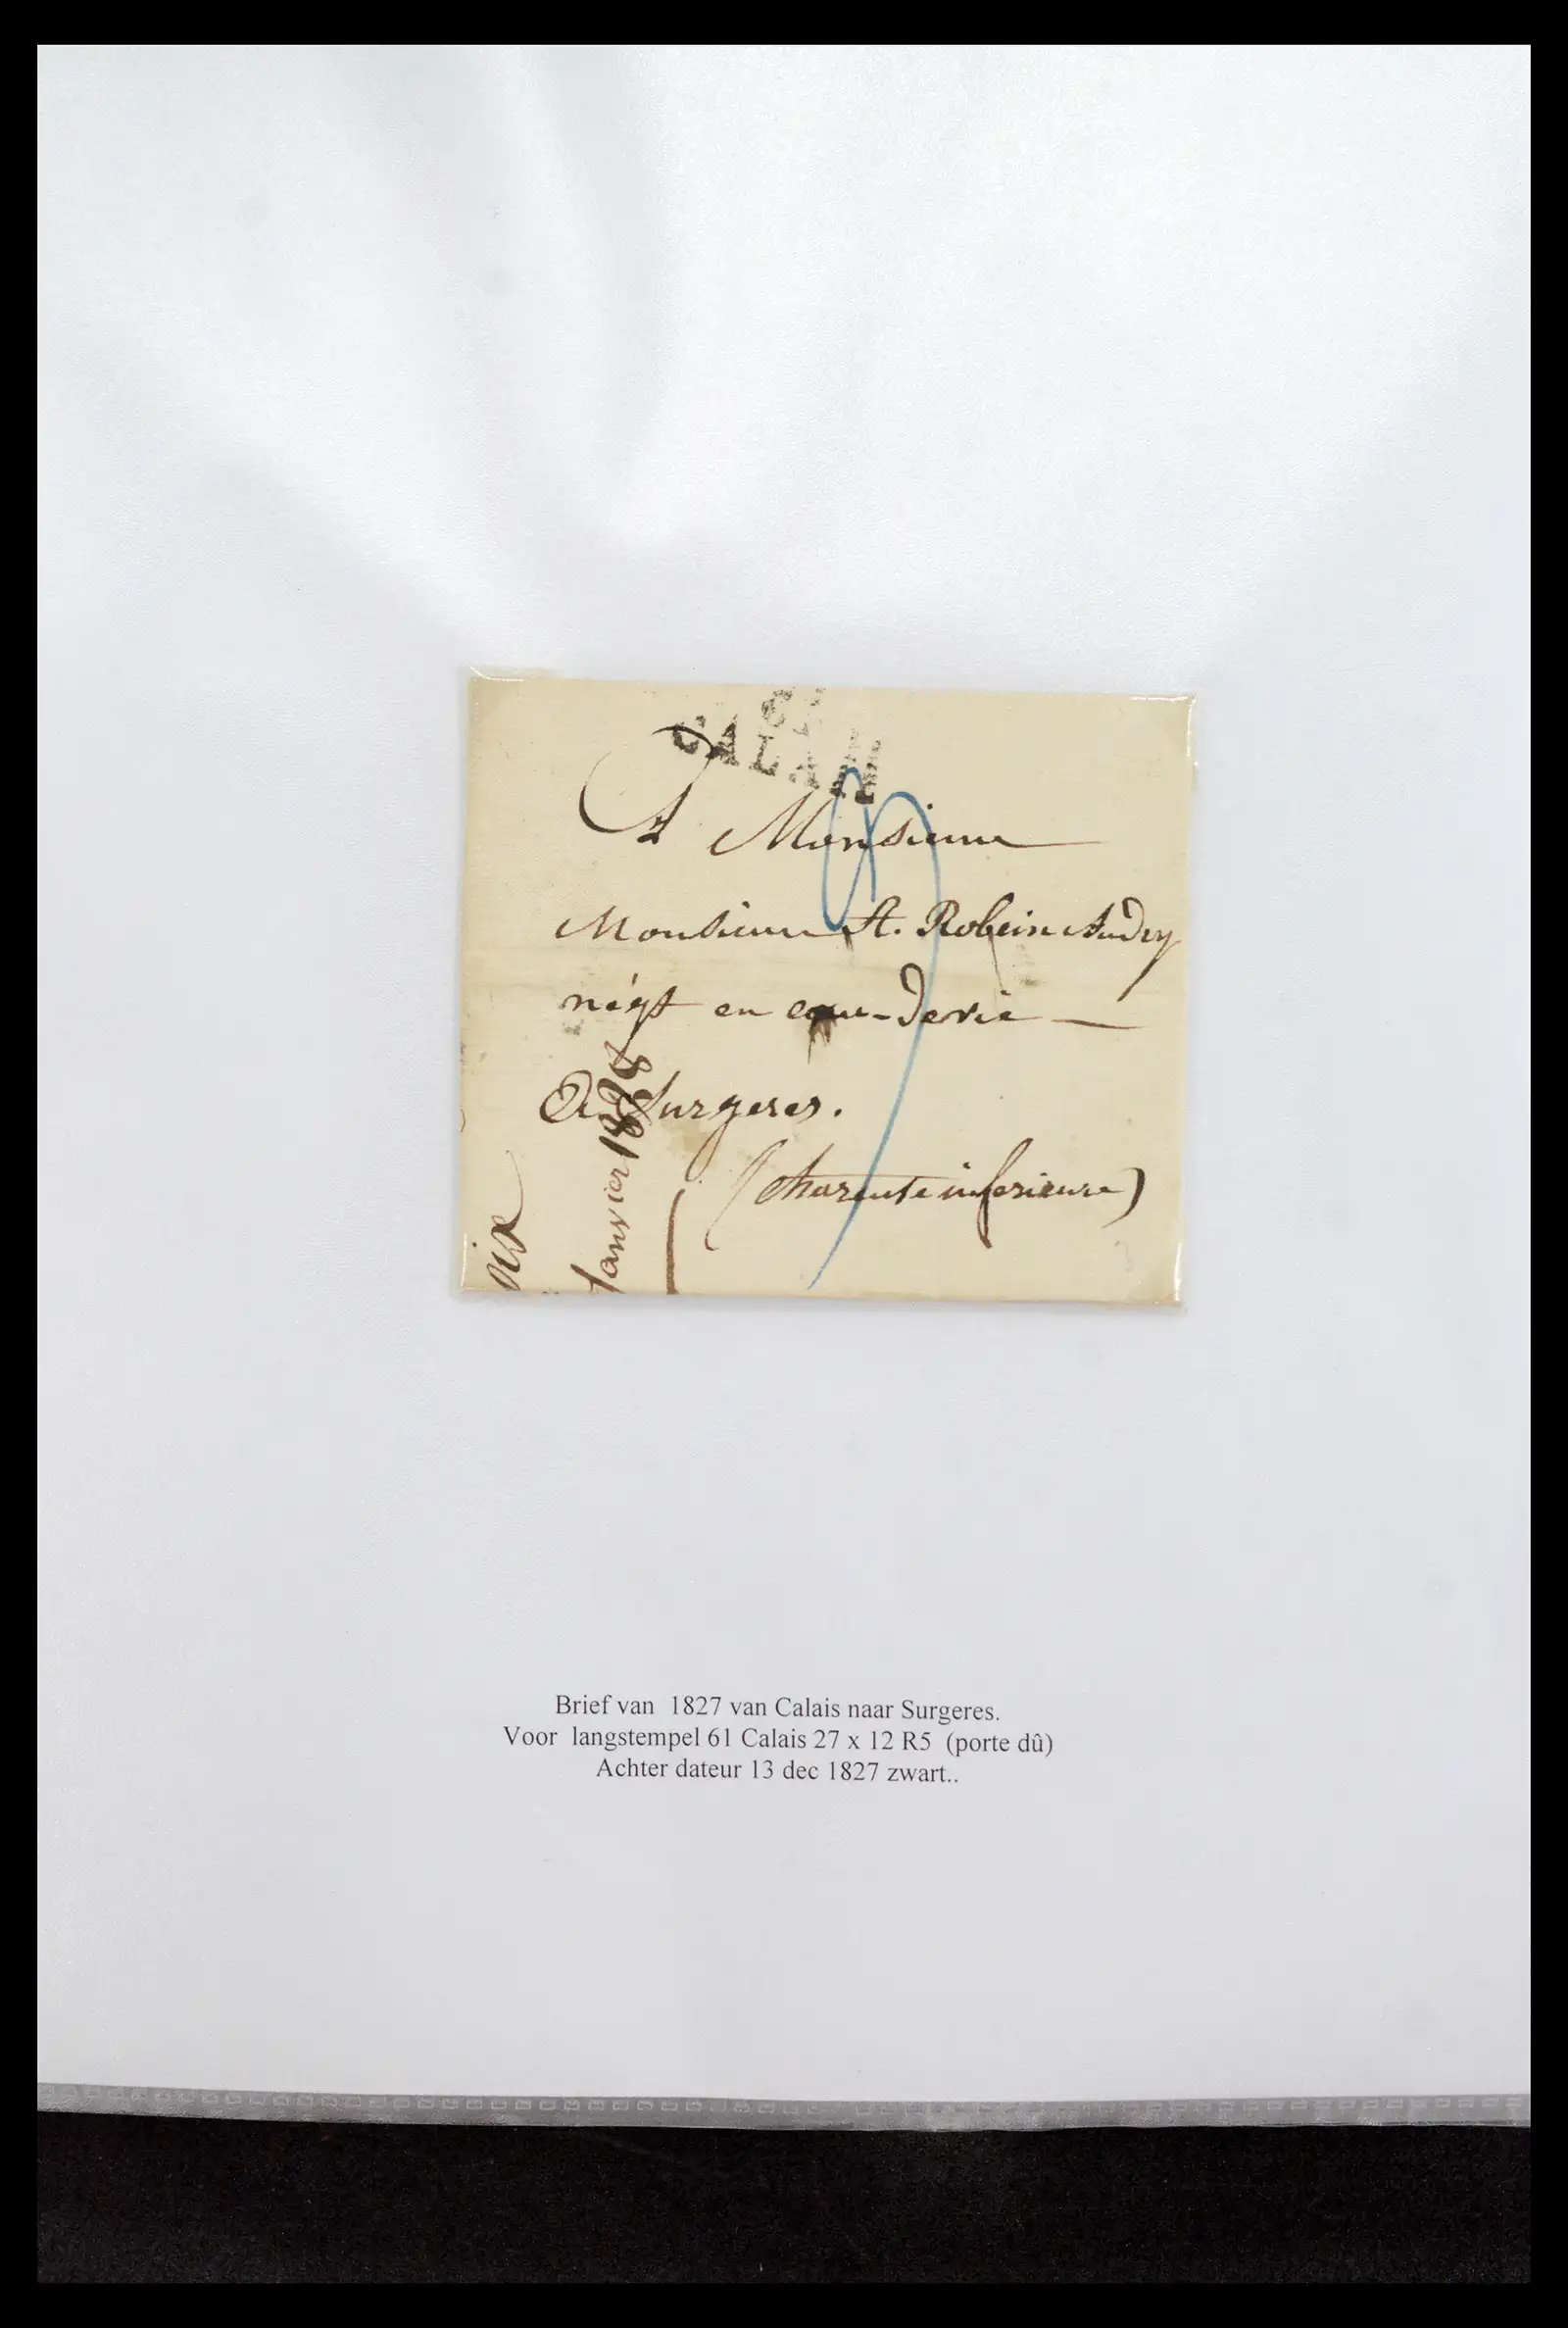 61
CALAIS
A Monsieur
Monsieur A. Robein Audry
négt en eau-devie
A Surgeres.
(Charente inferieure)
Janvier 1828
Brief van 1827 van Calais naar Surgeres.
Voor langstempel 61 Calais 27 x 12 R5 (porte dû)
Achter dateur 13 dec 1827 zwart..